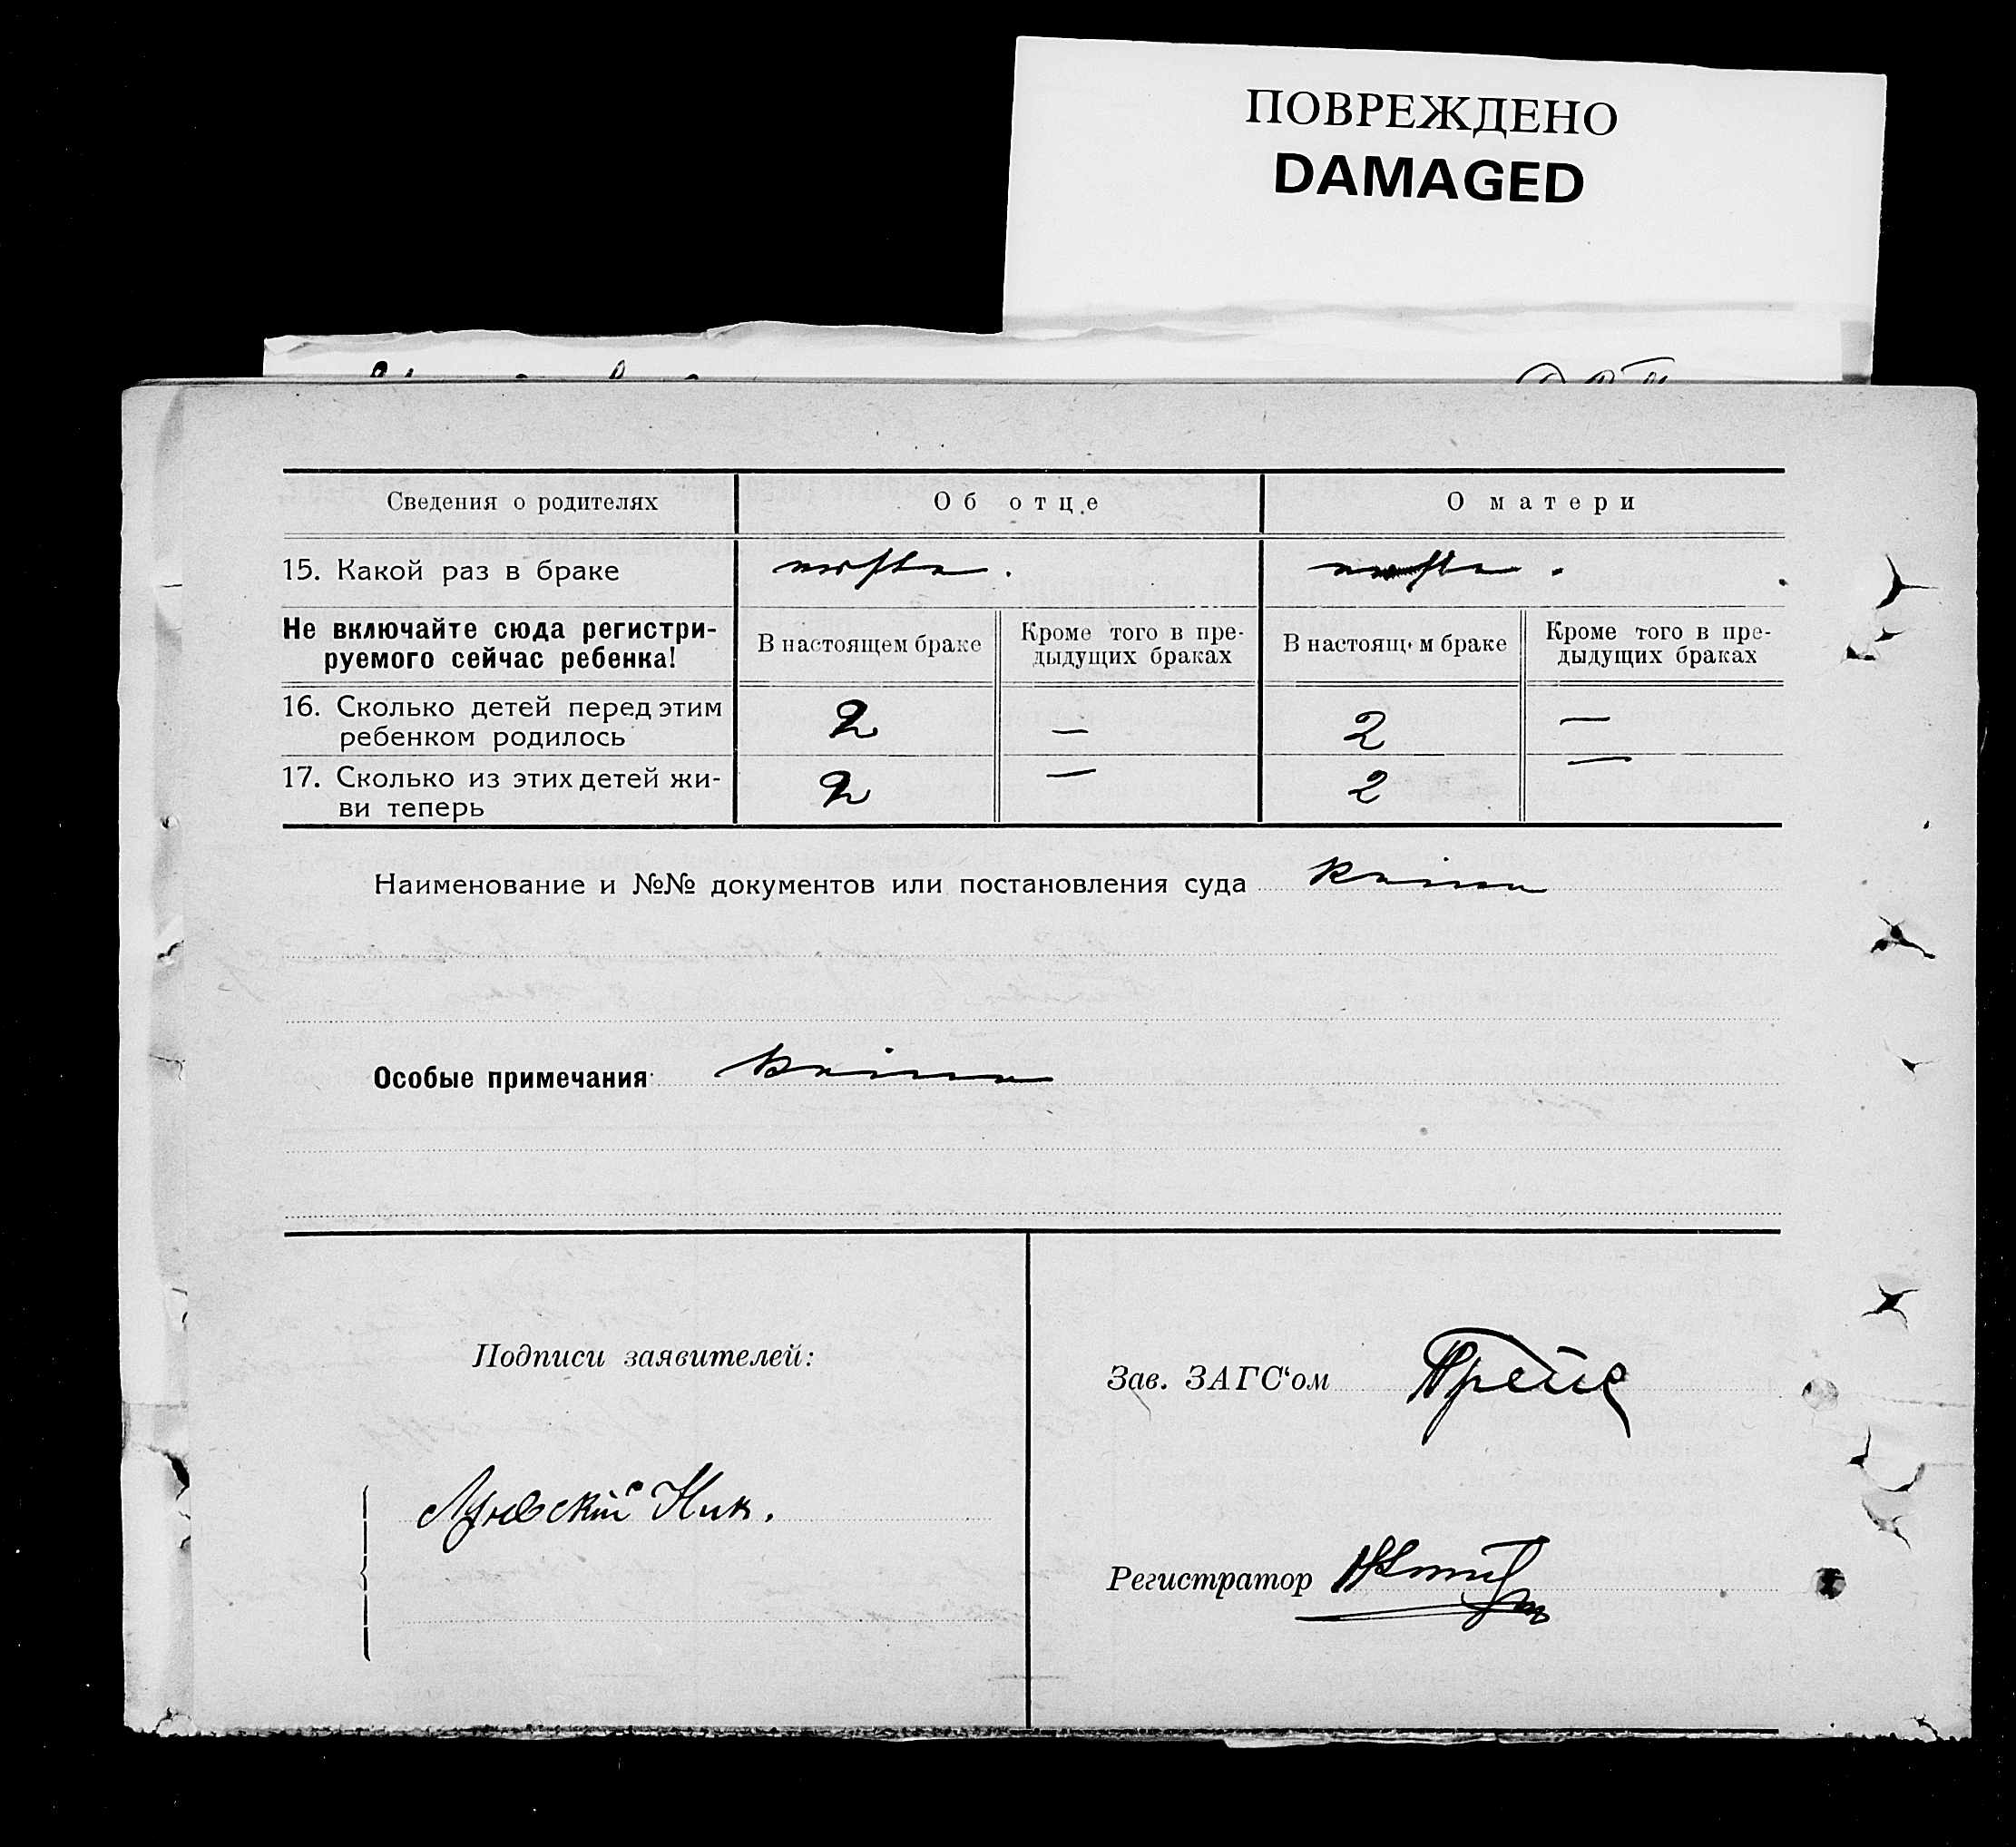 ПОВРЕЖДЕНО
DAMAGED
Сведения о родителях
Об отце
О матери
15. Какой раз в браке
Не включайте сюда регистри-
руемого сейчас ребенка!
В настоящем браке
Кроме того в пре-
дыдущих браках
В настоящем браке
Кроме того в пре-
дыдущих браках
16. Сколько детей перед этим
ребенком родилось
2 — 2 —
17. Сколько из этих детей жи-
ви теперь
2 — 2 —
Наименование и №№ документов или постановления суда
Особые примечания
Подписи заявителей:
Зав. ЗАГС‘ом
Ник.
Регистратор